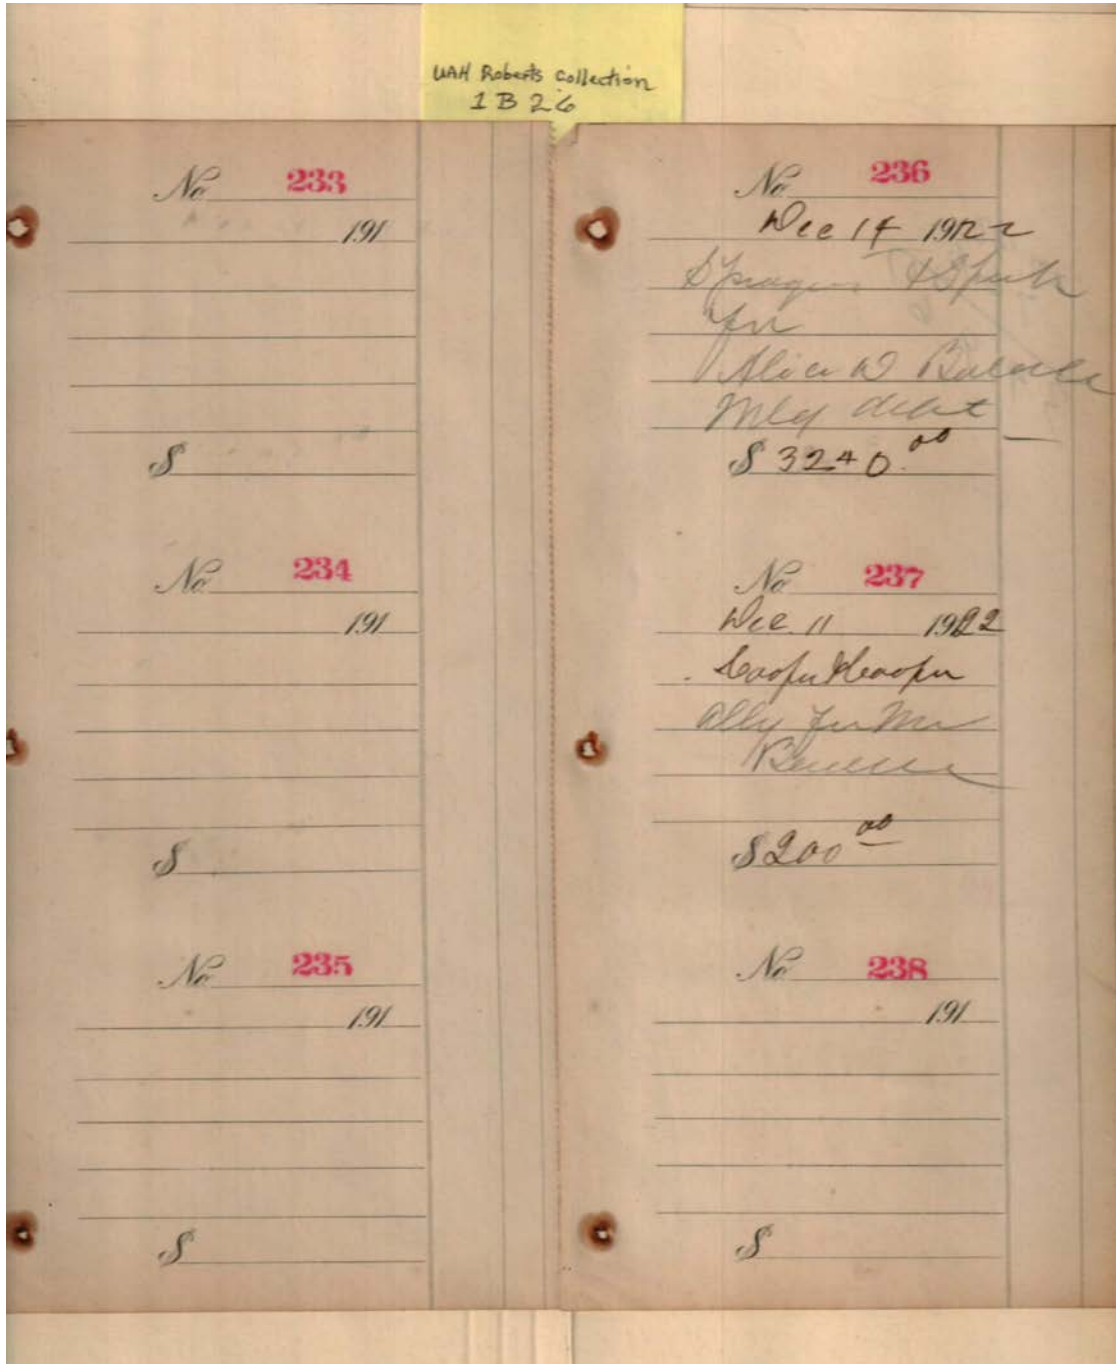 UAH Roberts Collection
1 B 26
No 233
191
$
No 234
191
$
No 235
191
$
No 236
Dec 14 1922
&
for
Alice W
debt
$ 3240.00
No 237
Dec. 11 1922
Cooper & Cooper
Atty for Mr
$200 00
No 238
191
$